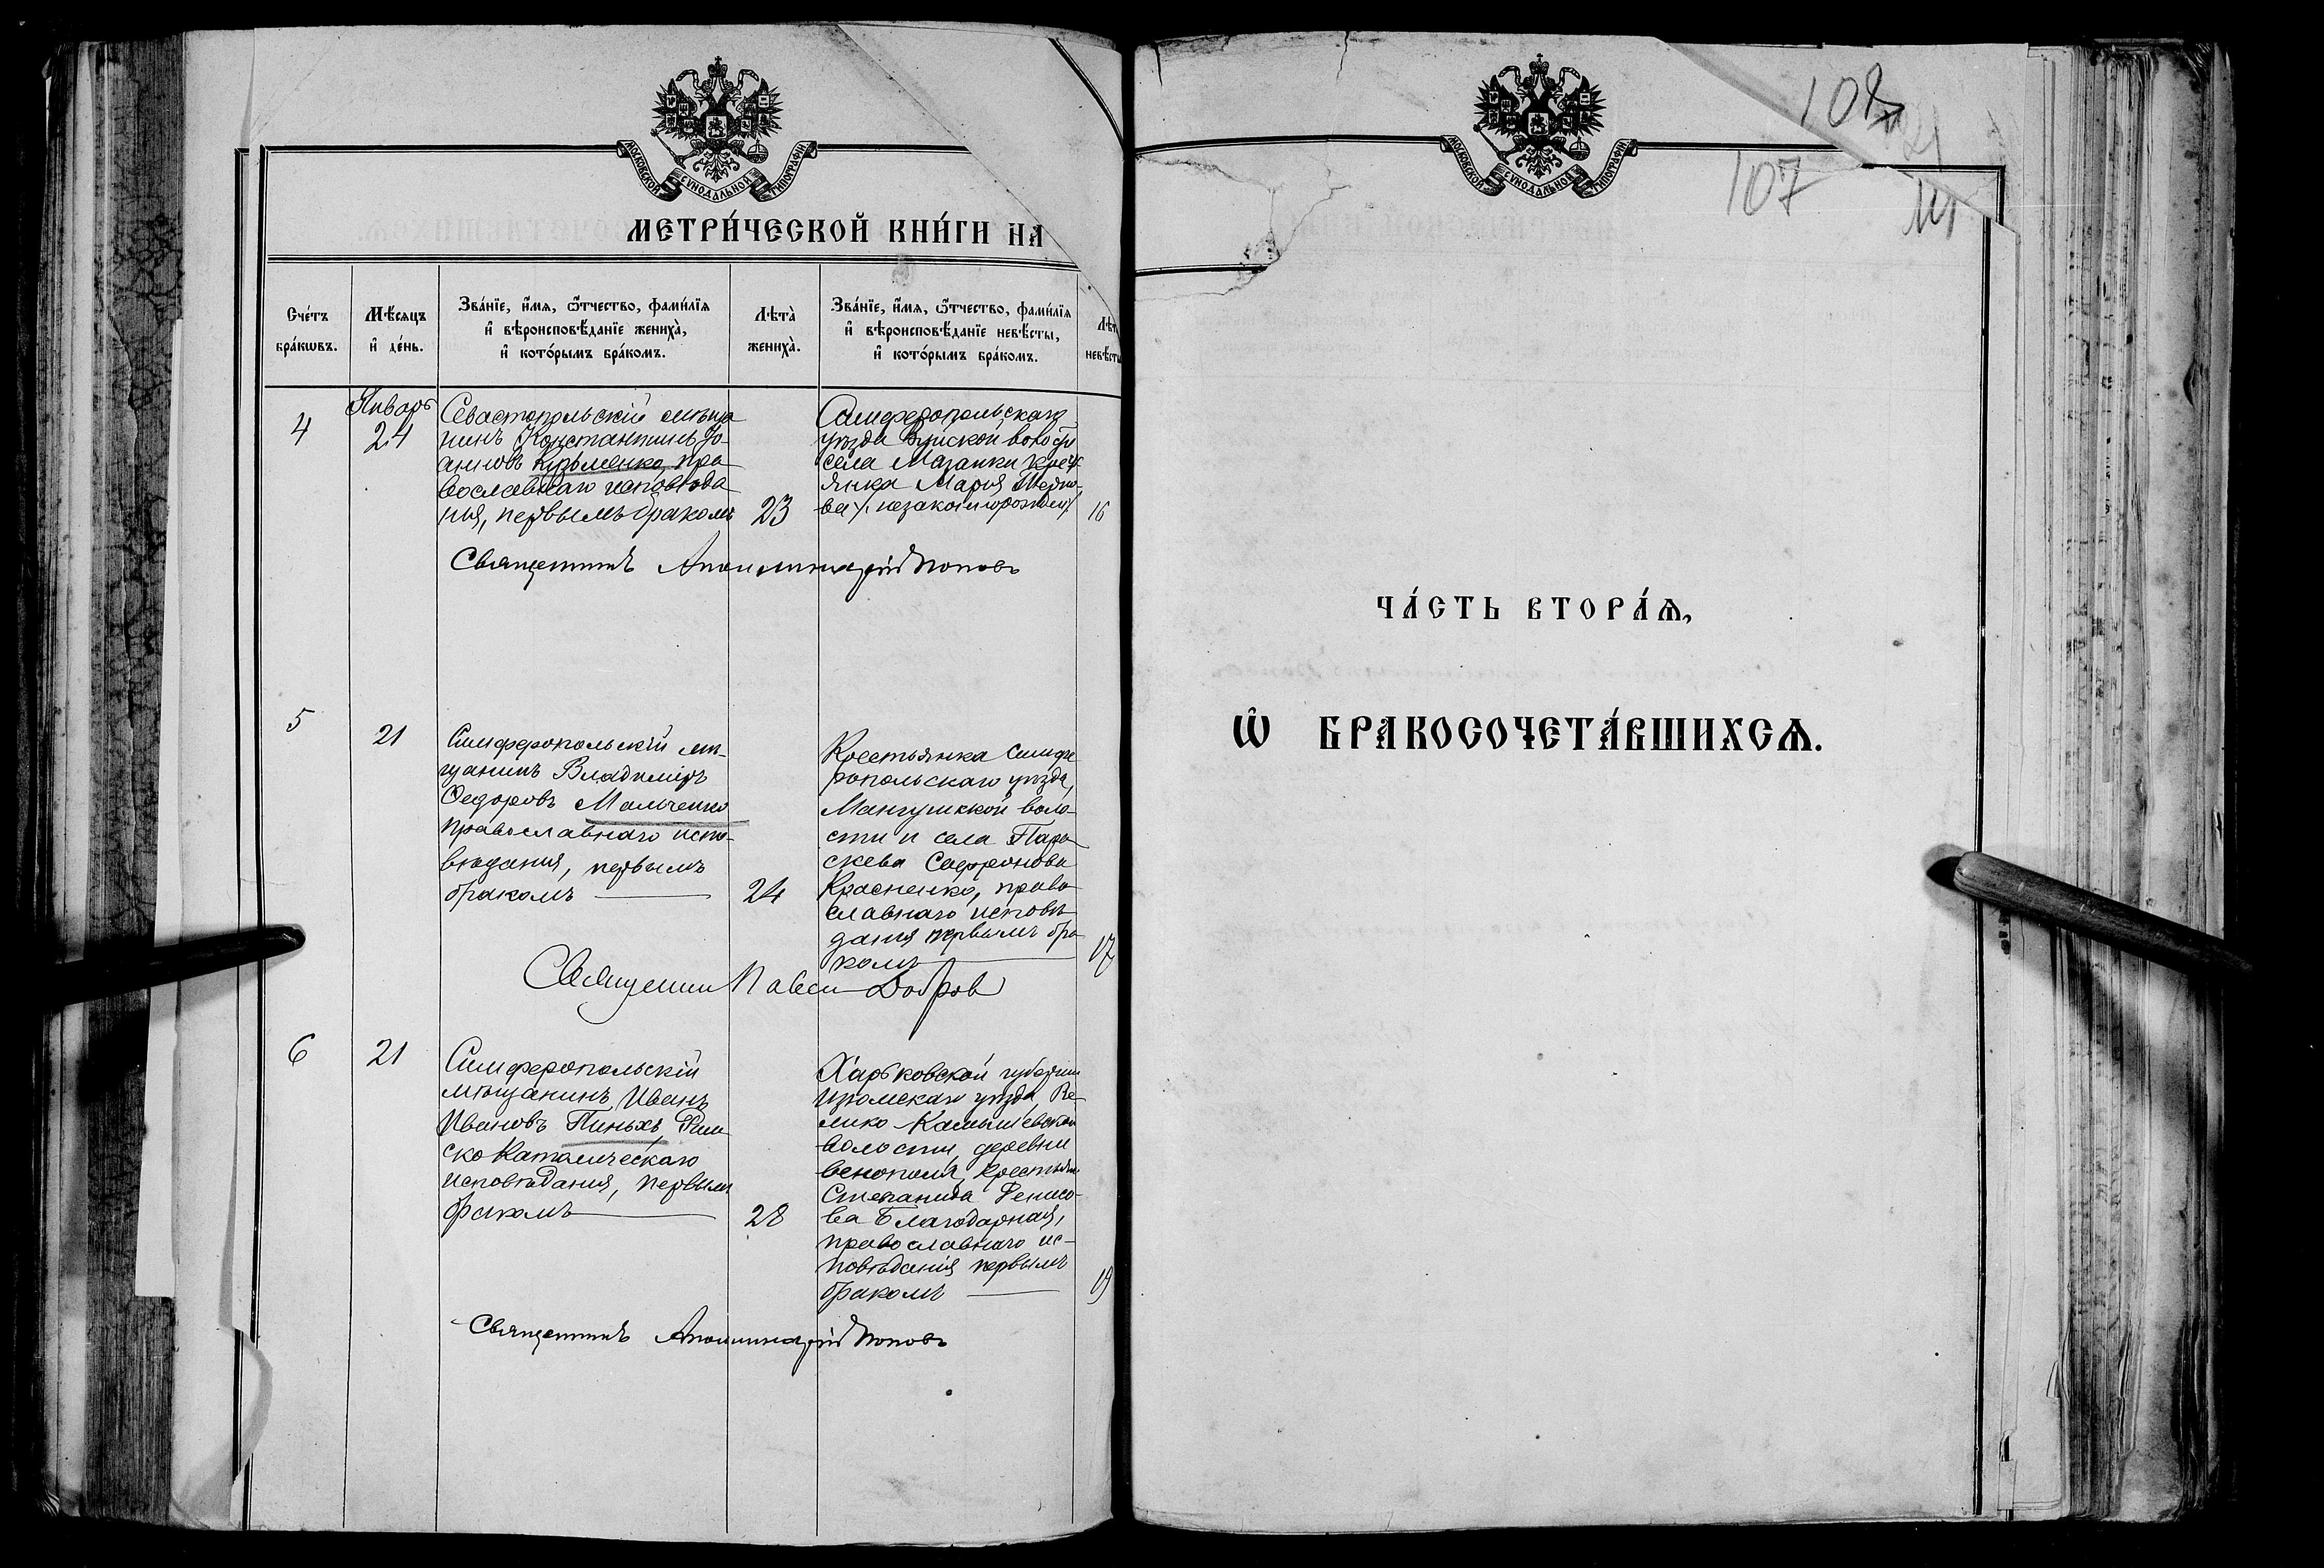 МОСКОВСКОЙ СѴНОДАЛЬНОЙ ТИПОГРАФІИ
МЕТРИ́ЧЕСКОЙ КНИ́ГИ НА
Сче́тъ бра́кѡвъ.
Мѣ́сяцъ и҆ де́нь.
Зва́нїе, и҆́мѧ, ѻ҆́тчество, фами́лїѧ
и҆ вѣроисповѣ́данїе жениха̀,
и҆ кото́рымъ бра́комъ.
Лѣта̀ жениха̀.
Зва́нїе, и҆́мѧ, ѻ҆́тчество, фами́лїѧ
и҆ вѣроисповѣ́данїе невѣ́сты,
и҆ кото́рымъ бра́комъ.
Лѣт
невѣ́сты
4
Январь
24
Севастопольскій мѣща
нинъ Константинъ Іо-
анновъ Кузьменко, пра
вославнаго исповѣда
нія, первымъ бракомъ
23
Симферопольскаго
уѣзда Зуйской волости
села Мазанки крест
янка Марія
ва /. незаконнорожден /.
16
Священникъ Аполлинарій Поповъ
5
21
Симферопольскій мѣ-
щанинъ Владиміръ
Ѳедоровъ Мальченко
православнаго испо-
вѣданія, первымъ
бракомъ
24
Крестьянка Симфе
ропольскаго уѣзда,
Мангушской воло-
сти и села Пара
скева Сафронова
Красненко, право
славнаго исповѣ
данія первымъ бра
комъ
17
Священник Павел Добров
6
21
Симферопольскій
мѣщанинъ Иванъ
Ивановъ Пиньхъ, Рим
ско Католическаго
исповѣданія, первымъ
бракомъ
28
Харьковской губерніи
Изюмскаго уѣзда, Ве
лико Камышевской
волости, деревни
крестьян
Степанида Денисо-
ва Благодарная,
православнаго ис-
повѣданія первымъ
бракомъ
19
Священникъ Аполлинарій Поповъ
МОСКОВСКОЙ СѴНОДАЛЬНОЙ ТИПОГРАФІИ
108
107
ЧА́СТЬ ВТОРА́Ѧ,
Ѽ БРАКОСОЧЕТА́ВШИХСѦ.